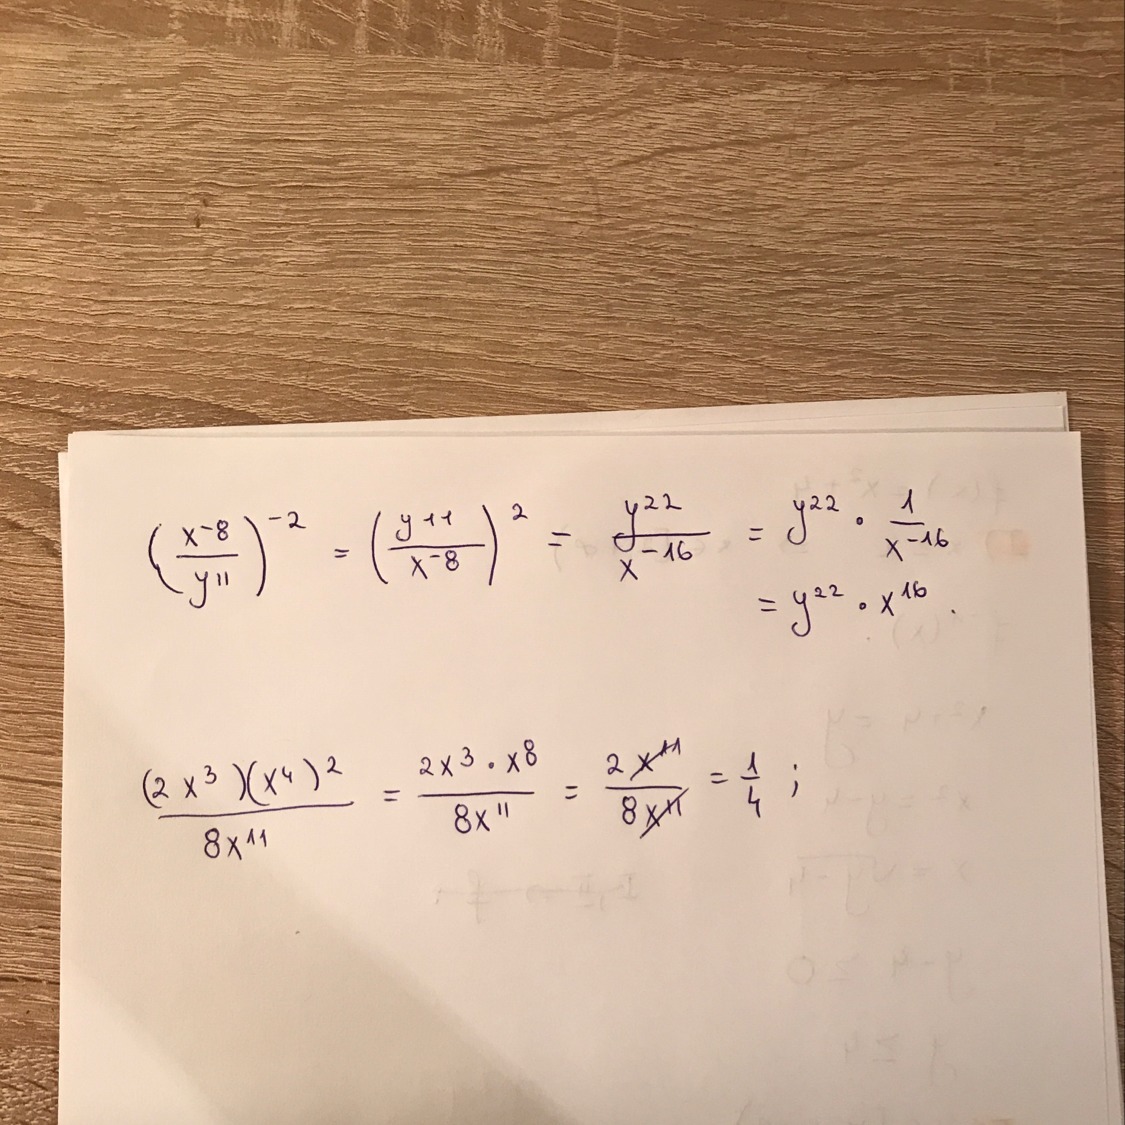 (x^-8 / y^11)^-2 = (y^11 / x^-8)^2 = y^22 / x^-16 = y^22 · 1 / x^-16
= y^22 · x^16 .
(2x^3)(x^4)^2 / 8x^11 = 2x^3 · x^8 / 8x^11 = 2x^11 / 8x^11 = 1/4 ;